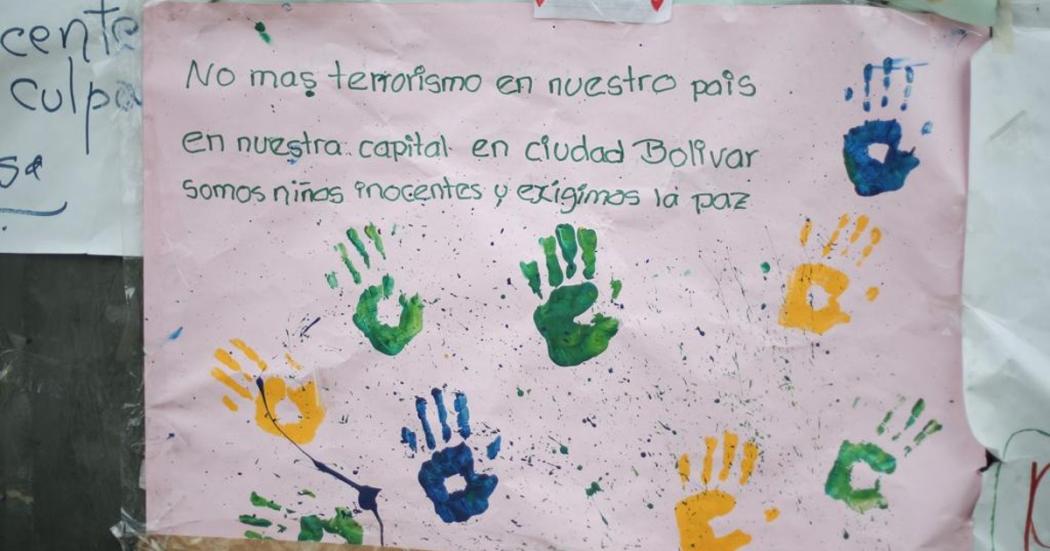 cente
culpa
sa
No mas terrorismo en nuestro pais
en nuestra capital en ciudad Bolivar
somos niños inocentes y exigimos la paz